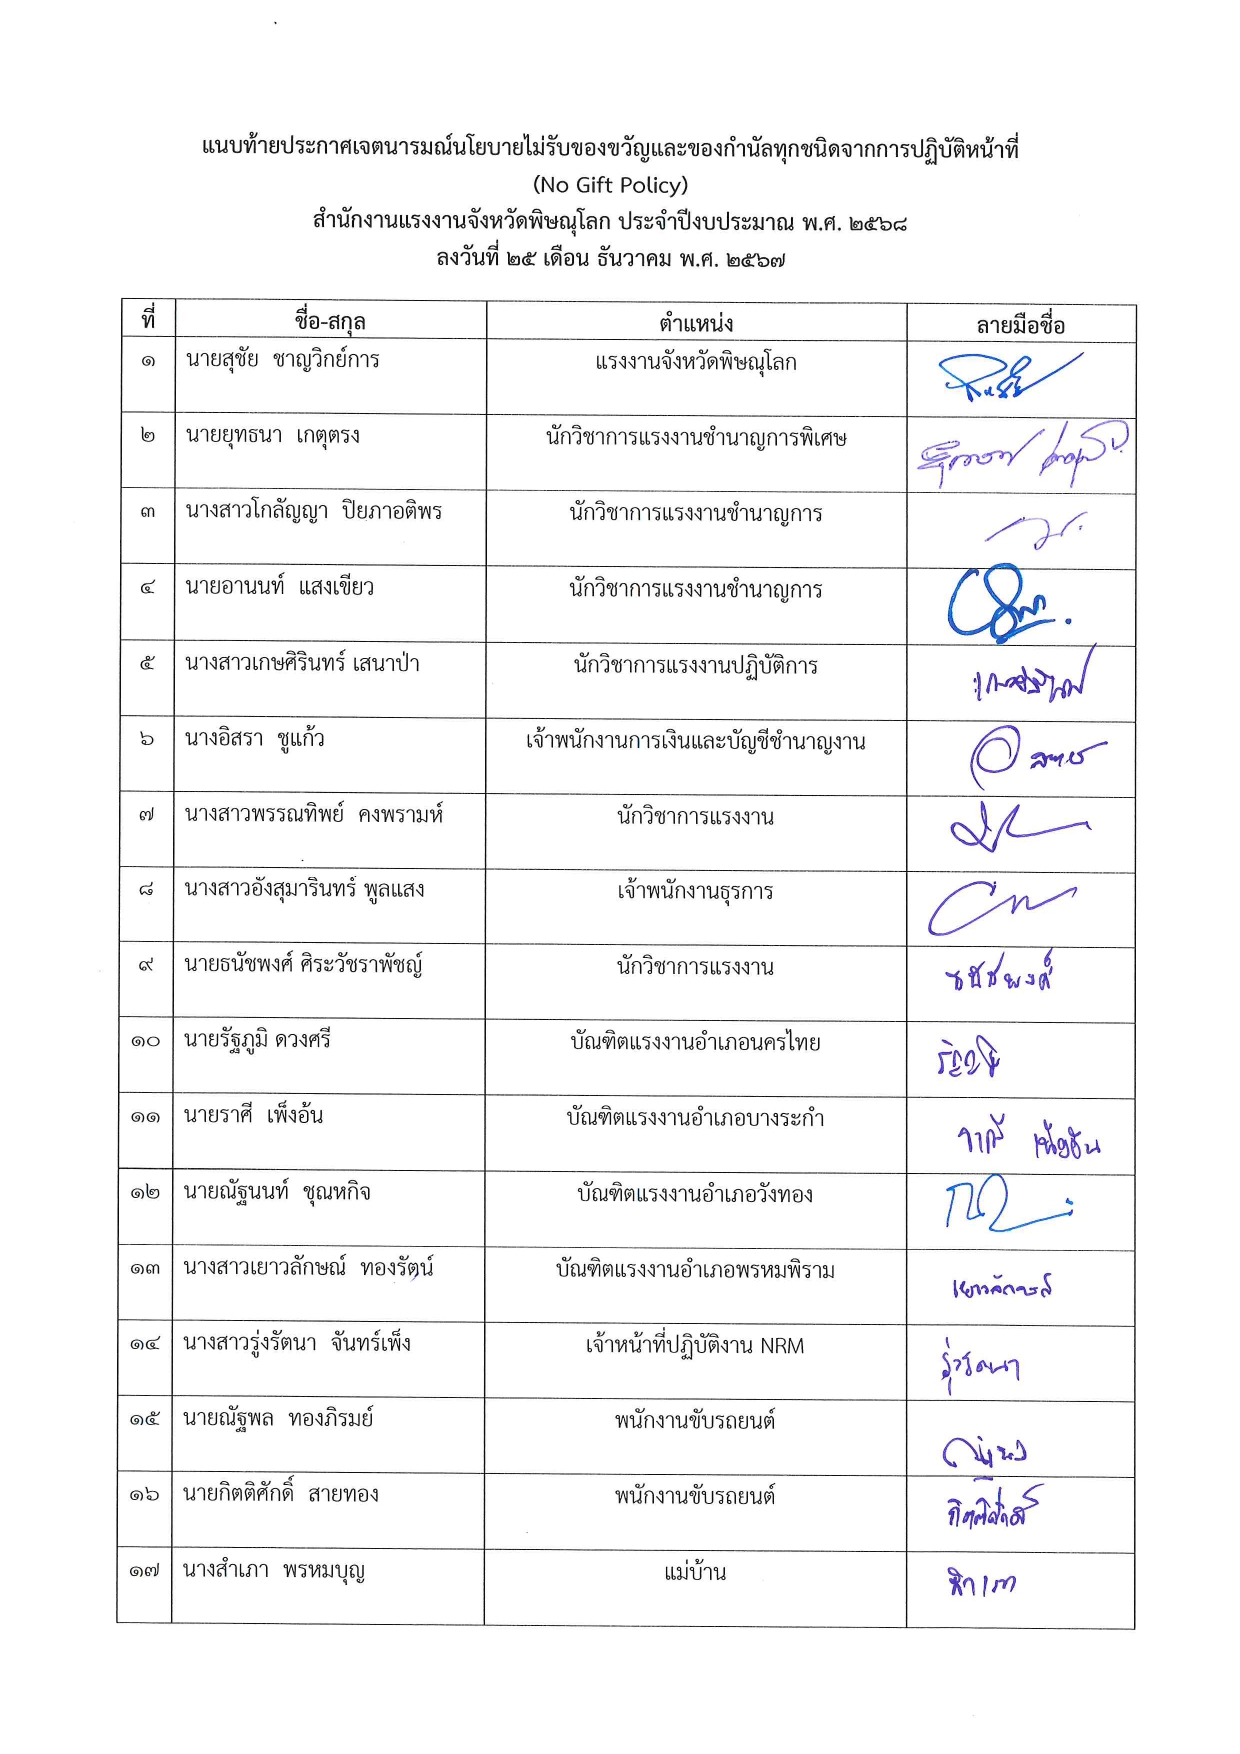 แนบท้ายประกาศเจตนารมณ์นโยบายไม่รับของขวัญและของกำนัลทุกชนิดจากการปฏิบัติหน้าที่
(No Gift Policy)
สำนักงานแรงงานจังหวัดพิษณุโลก ประจำปีงบประมาณ พ.ศ. ๒๕๖๘
ลงวันที่ ๒๕ เดือน ธันวาคม พ.ศ. ๒๕๖๗
ที่ ชื่อ-สกุล ตำแหน่ง ลายมือชื่อ
๑ นายสุชัย ชาญวิกย์การ แรงงานจังหวัดพิษณุโลก
๒ นายยุทธนา เกตุตรง นักวิชาการแรงงานชำนาญการพิเศษ
๓ นางสาวโกลัญญา ปิยภาอติพร นักวิชาการแรงงานชำนาญการ
๔ นายอานนท์ แสงเขียว นักวิชาการแรงงานชำนาญการ
๕ นางสาวเกษศิรินทร์ เสนาป่า นักวิชาการแรงงานปฏิบัติการ
๖ นางอิสรา ชูแก้ว เจ้าพนักงานการเงินและบัญชีชำนาญงาน
๗ นางสาวพรรณทิพย์ คงพรามห์ นักวิชาการแรงงาน
๘ นางสาวอังสุมารินทร์ พูลแสง เจ้าพนักงานธุรการ
๙ นายธนัชพงศ์ ศิระวัชราพัชญ์ นักวิชาการแรงงาน ธนัชพงศ์
๑๐ นายรัฐภูมิ ดวงศรี บัณฑิตแรงงานอำเภอนครไทย รัฐภูมิ
๑๑ นายราศี เพ็งอ้น บัณฑิตแรงงานอำเภอบางระกำ ราศี เพ็งอ้น
๑๒ นายณัฐนนท์ ชุณหกิจ บัณฑิตแรงงานอำเภอวังทอง
๑๓ นางสาวเยาวลักษณ์ ทองรัตน์ บัณฑิตแรงงานอำเภอพรหมพิราม เยาวลักษณ์
๑๔ นางสาวรุ่งรัตนา จันทร์เพ็ง เจ้าหน้าที่ปฏิบัติงาน NRM รุ่งรัตนา
๑๕ นายณัฐพล ทองภิรมย์ พนักงานขับรถยนต์
๑๖ นายกิตติศักดิ์ สายทอง พนักงานขับรถยนต์ กิตติศักดิ์
๑๗ นางสำเภา พรหมบุญ แม่บ้าน สำเภา